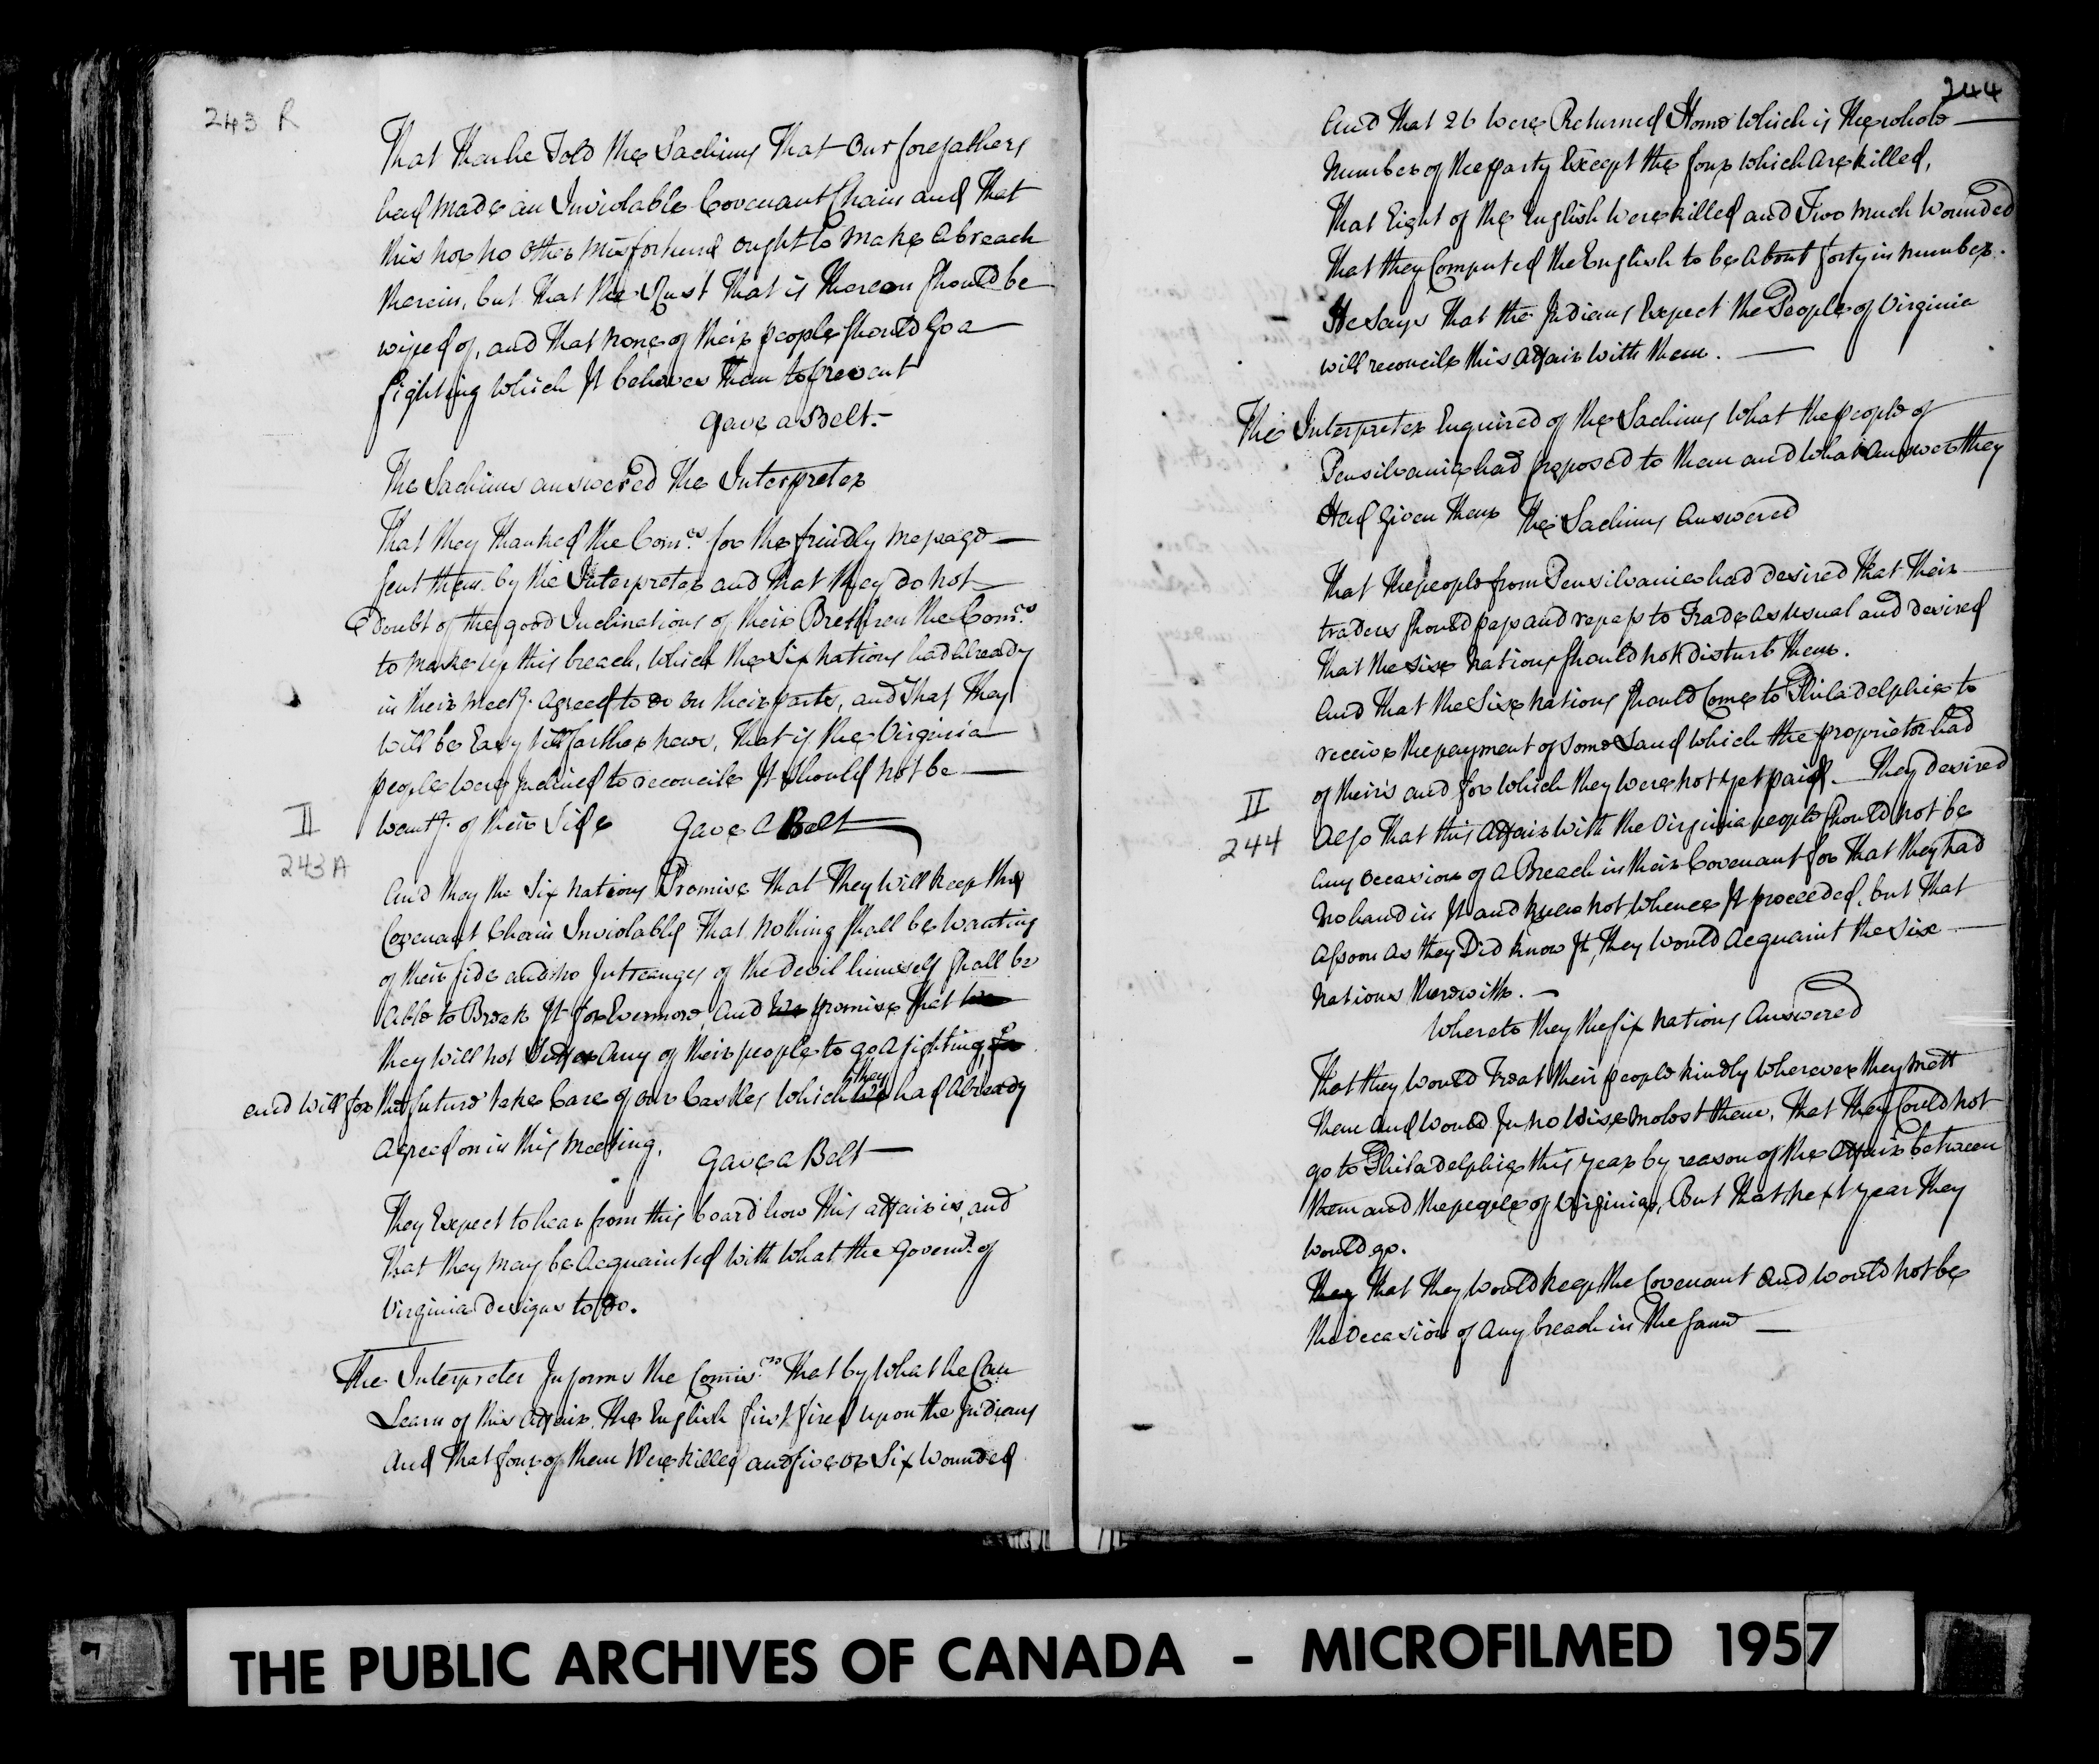 243 R
That Than he Told the Sachims That Our forefathers
had made an Inviolable Covenant Chain and That
this nor no other misfortune ought to make a breach
therein, but That the Rust That is thereon should be
wiped of, and That none of their people should Go a
fighting which It behoves Them to prevent
Gave a Belt.-
The Sachims answered The Interpreter
That they Thanked the Com.rs for the frindly message
sent them by the Interpreter and That they do not
doubt of the good Inclinations of their Brethren the Com.rs
to make up this breach, which the Six Nations had Already
in their meetg. agreed to do on their parts, and That They
will be Easy till farther news, That if the Virginia
people were Inclined to reconcile It should not be
II
wantg. of their Side Gave A Belt
243 A
And they the Six Nations Promise That They will keep the
Covenant Chain Inviolably That nothing shall be wanting
of their side and no Intreangs of the devil himself shall be
Able to Break It for Evermore, And we promise That we
they will not Suffer Any of their people to go A fighting, for
and will for the future take Care of our Castles which we they had Already
Agreed on in this Meeting. Gave a Belt
They Expect to hear from this board how This affair is, and
That they may be Acquainted with what the Governt. of
Virginia designs to do.
The Interpreter Informs the Comis.rs That by what he Can
Learn of this Affair, The English first fired upon the Indians
And That four of them Were killed and five or Six Wounded
244
And That 26 were Returned Home which is the whole
number of the party Except the four which Are killed,
That Eight of the English were killed and Two much Wounded
That they Computed the English to be About forty in number.
He Says That the Indians Expect the People of Virginia
will reconcile this Affair with them.
The Interpreter Enquired of the Sachims what the people of
Pensilvania had proposed to them and what answer they
Had Given Them The Sachims Answered
That the people from Pensilvania had desired That Their
traders should pass and repass to Trade as usual and desired
That the Six Nations should not disturb Them.
And That the Six Nations should Come to Philadelphia to
receive the payment of some Land which the proprietor had
of their's and for which they were not yet paid. They desired
II
244
Also That this Affair with the Virginia people should not be
Any Occasion of a Breach in their Covenant for That they had
No hand in It and knew not whence It proceeded, but That
Assoon As they Did know It, They would Acquaint the Six
Nations therewith.
Whereto they the Six Nations Answered
That they would Treat their people kindly wherever they mett
them And would In no Wise molest them, That They Could not
go to Philadelphia this year by reason of the Affair between
them and the people of Virginia, But That next year They
would go.
They That They would keep the Covenant And would not be
the Occasion of Any breach in The same
THE PUBLIC ARCHIVES OF CANADA - MICROFILMED 1957